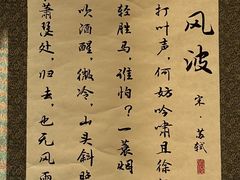 风波
宋·苏轼
打叶声，何妨吟啸且徐
轻胜马，谁怕？一蓑烟
吹酒醒，微冷，山头斜照
萧瑟处，归去，也无风雨